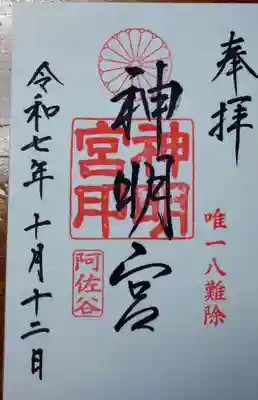 奉拝
唯一八難除
神明宮
神明宮
阿佐谷
令和七年十月十二日